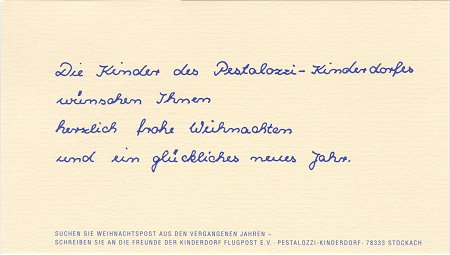 Die Kinder des Pestalozzi-Kinderdorfes
wünschen Ihnen
herzlich frohe Weihnachten
und ein glückliches neues Jahr.
SUCHEN SIE WEIHNACHTSPOST AUS DEN VERGANGENEN JAHREN –
SCHREIBEN SIE AN DIE FREUNDE DER KINDERDORF FLUGPOST E.V. · PESTALOZZI-KINDERDORF · 78333 STOCKACH